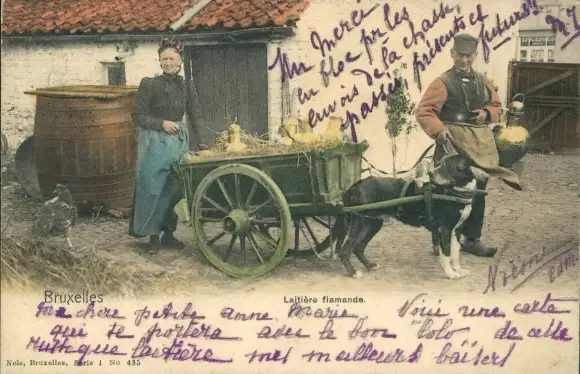 Un Merci
en bloc pr les
envois de la chasse
passés présents et futurs!!
Bruxelles
Laitière flamande.
Ma chère petite Anne Marie Voici une carte
qui te portera avec le bon "lolo" de cette
rustique laitière mes meilleurs baisers
Nels, Bruxelles, Série 1 No 485